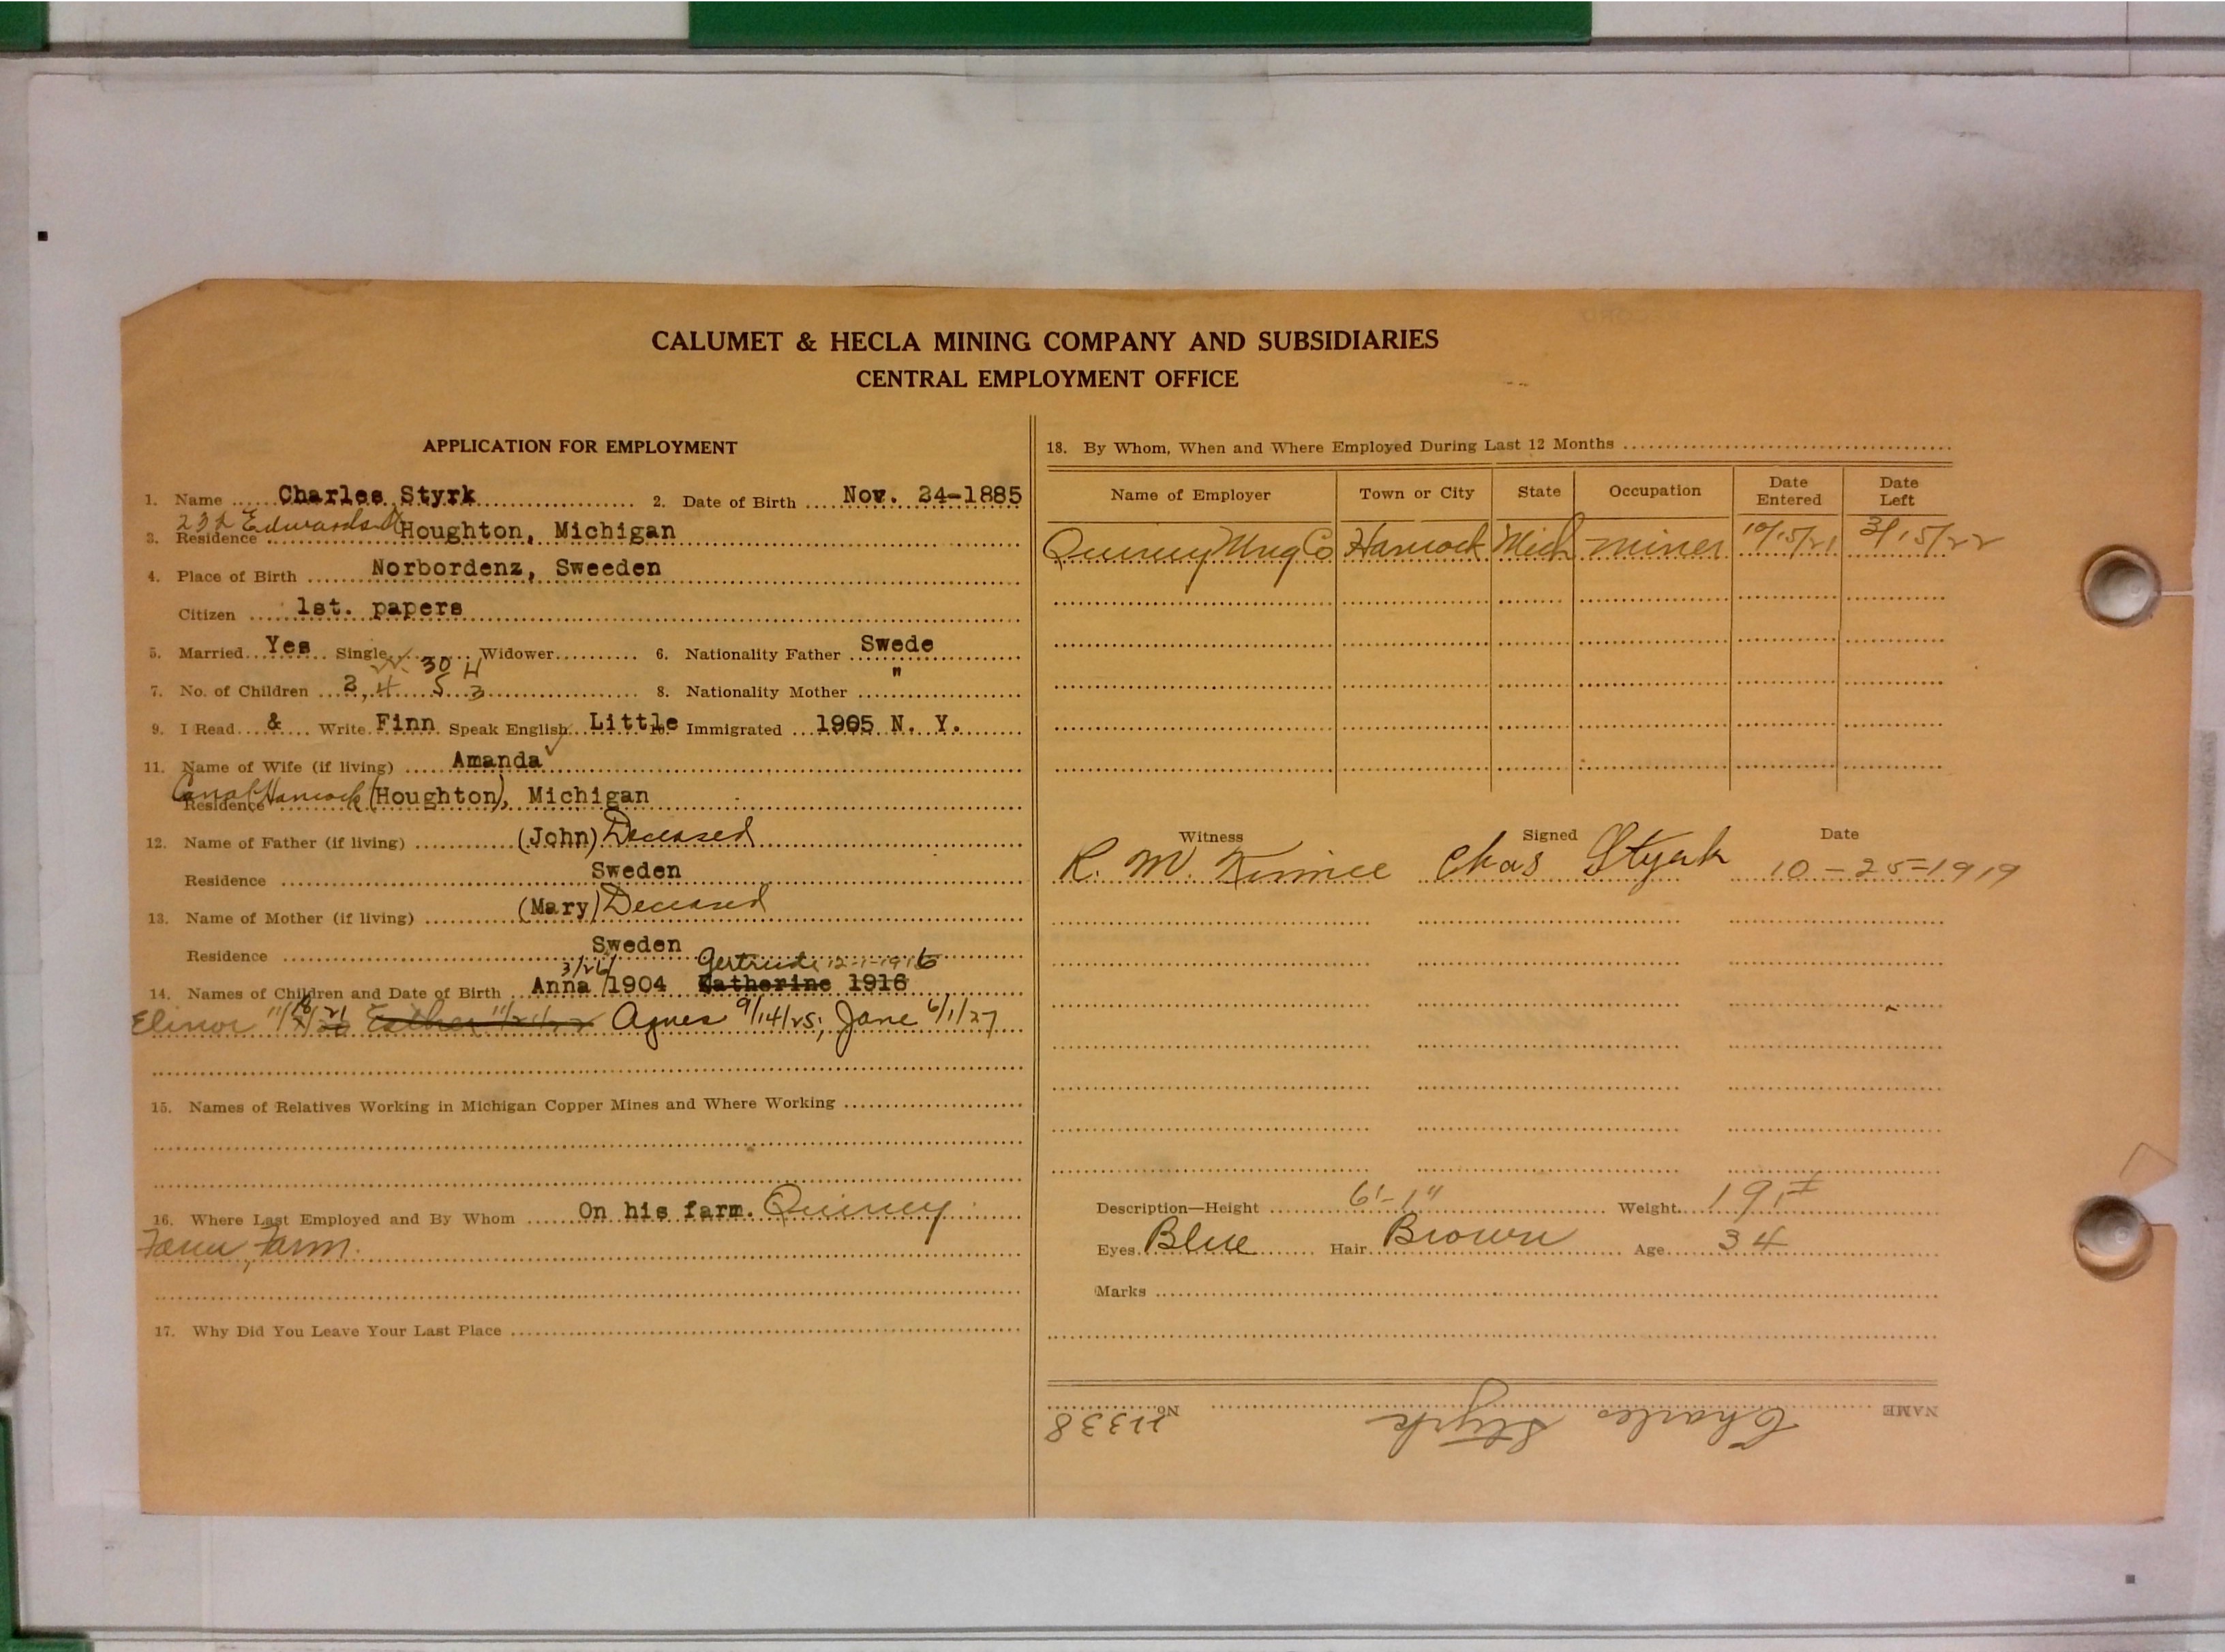 CALUMET & HECLA MINING COMPANY AND SUBSIDIARIES
CENTRAL EMPLOYMENT OFFICE
APPLICATION FOR EMPLOYMENT
1. Name Charles Styrk 2. Date of Birth Nov. 24-1885
232 Edwards St
3. Residence Houghton, Michigan
4. Place of Birth Norbordenz, Sweeden
Citizen 1st. papers
5. Married Yes Single Widower 6. Nationality Father Swede
30 4
7. No. of Children 2, 4 5 3 8. Nationality Mother "
9. I Read & Write Finn Speak English Little 10. Immigrated 1905 N. Y.
11. Name of Wife (if living) Amanda
Residence Hancock (Houghton), Michigan
12. Name of Father (if living) (John) Deceased
Residence Sweden
13. Name of Mother (if living) (Mary) Deceased
Residence Sweden
3/26/ Gertrude 12-1-1916
14. Names of Children and Date of Birth Anna 1904 Katherine 1916
Elinor 11/18/21 Esther 11/21/22 Agnes 9/14/25; Jane 6/1/27
15. Names of Relatives Working in Michigan Copper Mines and Where Working
16. Where Last Employed and By Whom On his farm. Quincy
Farm, Farm.
17. Why Did You Leave Your Last Place
18. By Whom, When and Where Employed During Last 12 Months
Name of Employer Town or City State Occupation Date Entered Date Left
Quincy Mng Co Hancock Mich miner 10/15/21 3/15/22
Witness Signed Date
R. M. Chas Styrk 10-25-1919
Description—Height 6'-1" Weight 191#
Eyes Blue Hair Brown Age 34
Marks
NAME Charles Styrk No. 11338